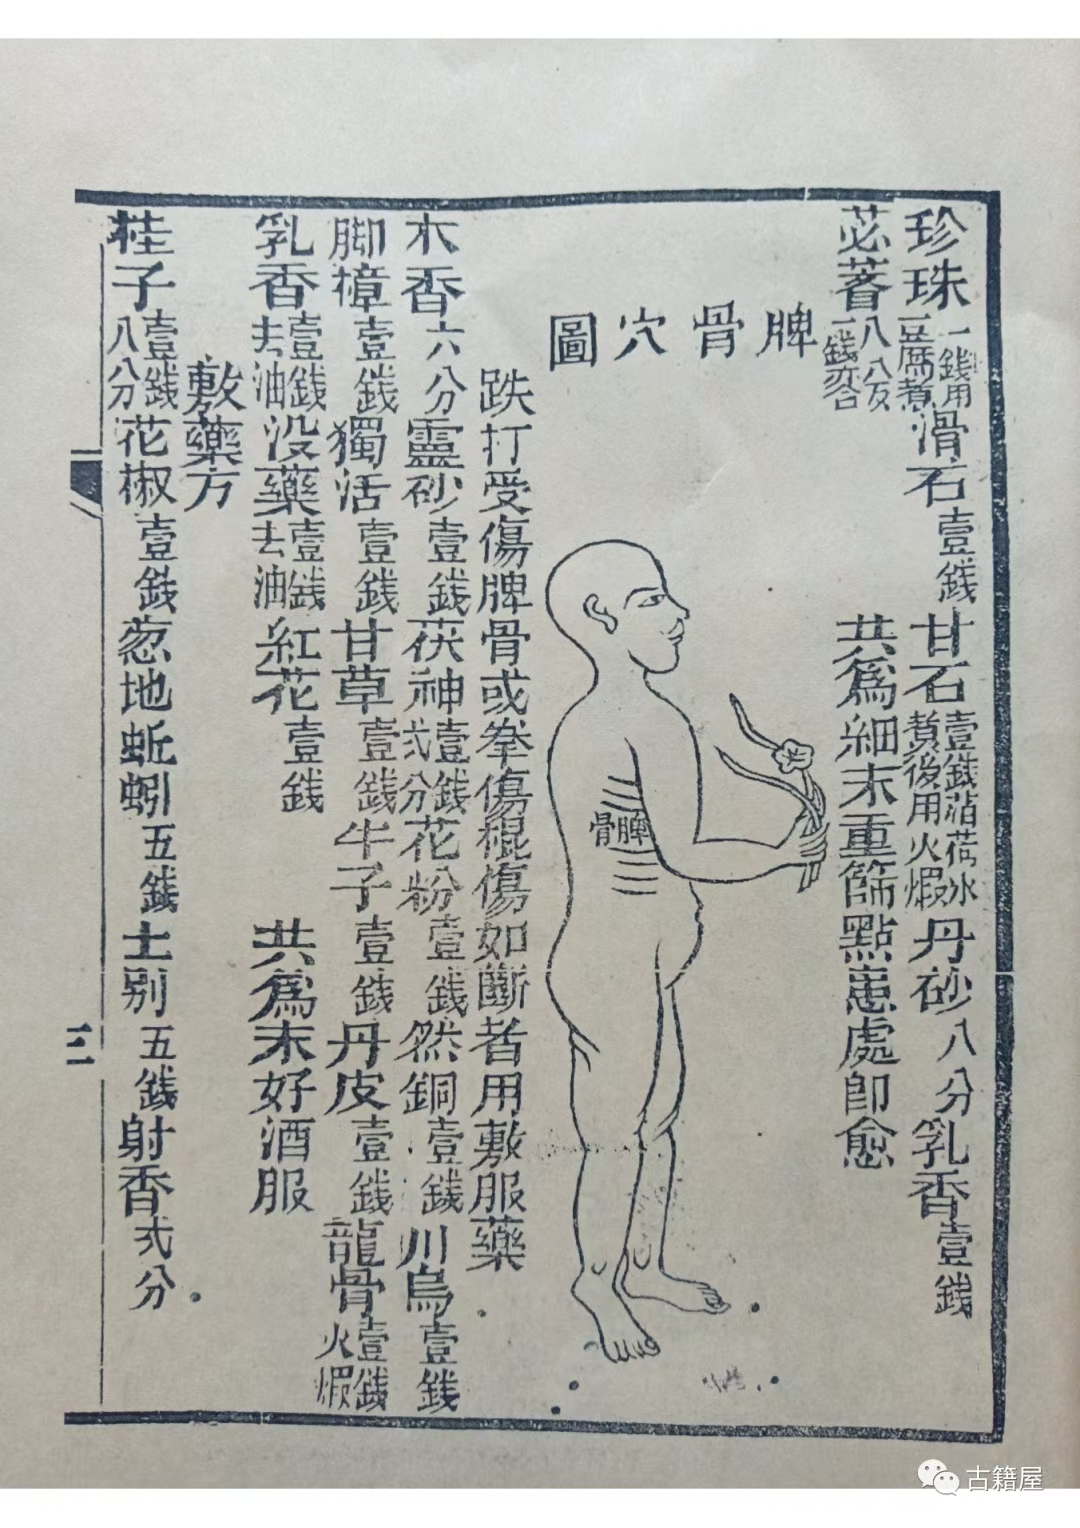 珍珠一錢用豆腐煮滑石壹錢甘石壹錢薄荷水煑後用火煆丹砂八分乳香壹錢
苾蓍八分一錢
共爲細末重篩點患處即愈
脾骨穴圖
脾骨
跌打受傷脾骨或拳傷棍傷如斷者用敷服藥
木香六分靈砂壹錢茯神壹錢弍分花粉壹錢然銅壹錢川烏壹錢
脚樟壹錢獨活壹錢甘草壹錢牛子壹錢丹皮壹錢龍骨壹錢火煆
乳香壹錢去油没藥壹錢去油紅花壹錢共爲末好酒服
敷藥方
桂子壹錢八分花椒壹錢葱地蚯蚓五錢土别五錢射香弍分
三
古籍屋